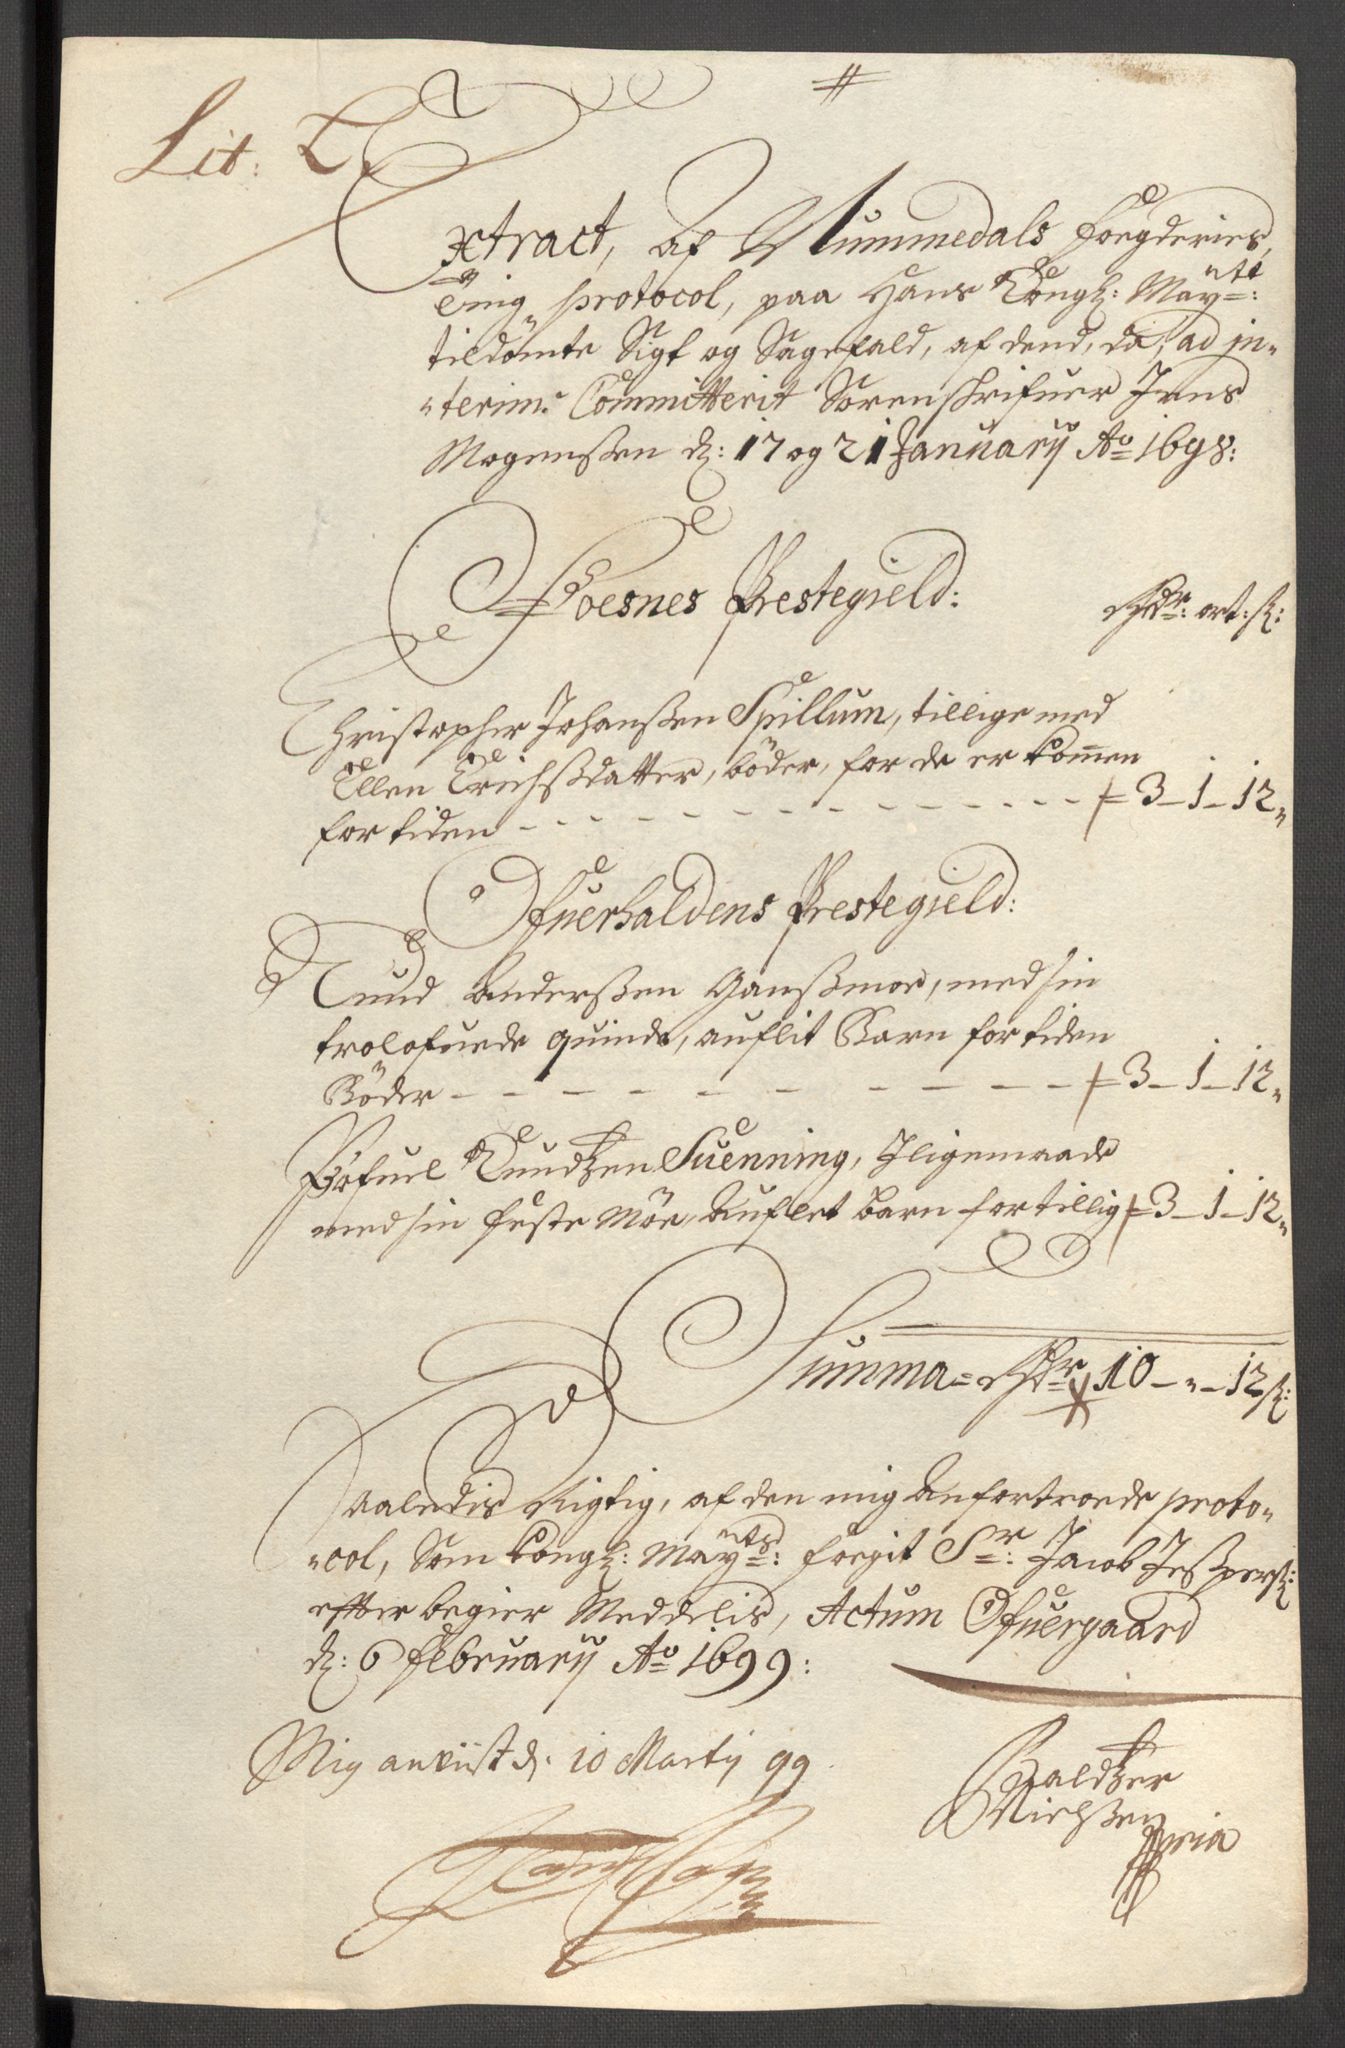 Lit: L
Extract, af Nummedals Foegderies,
Ting protocol, paa Hans Kongl: Maÿtt:
tildömte Sigt og Sagefald, af dend, da, ad in-
terim: Committerit Sorenskrifuer Jens
Mogenssen d: 17 og 21 January Ao 1698:
Foesnes Prestegield:
Rdr: ort: s:
Christopher Johanssen Spillum, tillige med
Ellen Erichssdatter, böder, for de er kommen
for tiden - - - 3 - 1 - 12
Ofuerhaldens Prestegield:
Knud Anderssen Ganssmoe, med sin
trolofuede quinde, auflit Barn for tiden
Böder - - - 3 - 1 - 12
Pofuel Knudtzen Suenning, Iligemaade
med sin feste Möe, Auflet barn for tillig 3 - 1 - 12
Summa = Rdr 10 - " - 12 s:
Saaledis Rigtig, af den mig Anfortroede proto-
col, Som kongl: Maÿtts: foegit Sr: Jacob Jesspers:
efter begier Meddelis, Actum Ofuergaard
d: 6 February Ao 1699:
Mig anviist d: 10 Martij 99
Baldtzer
Nielssen
mpria